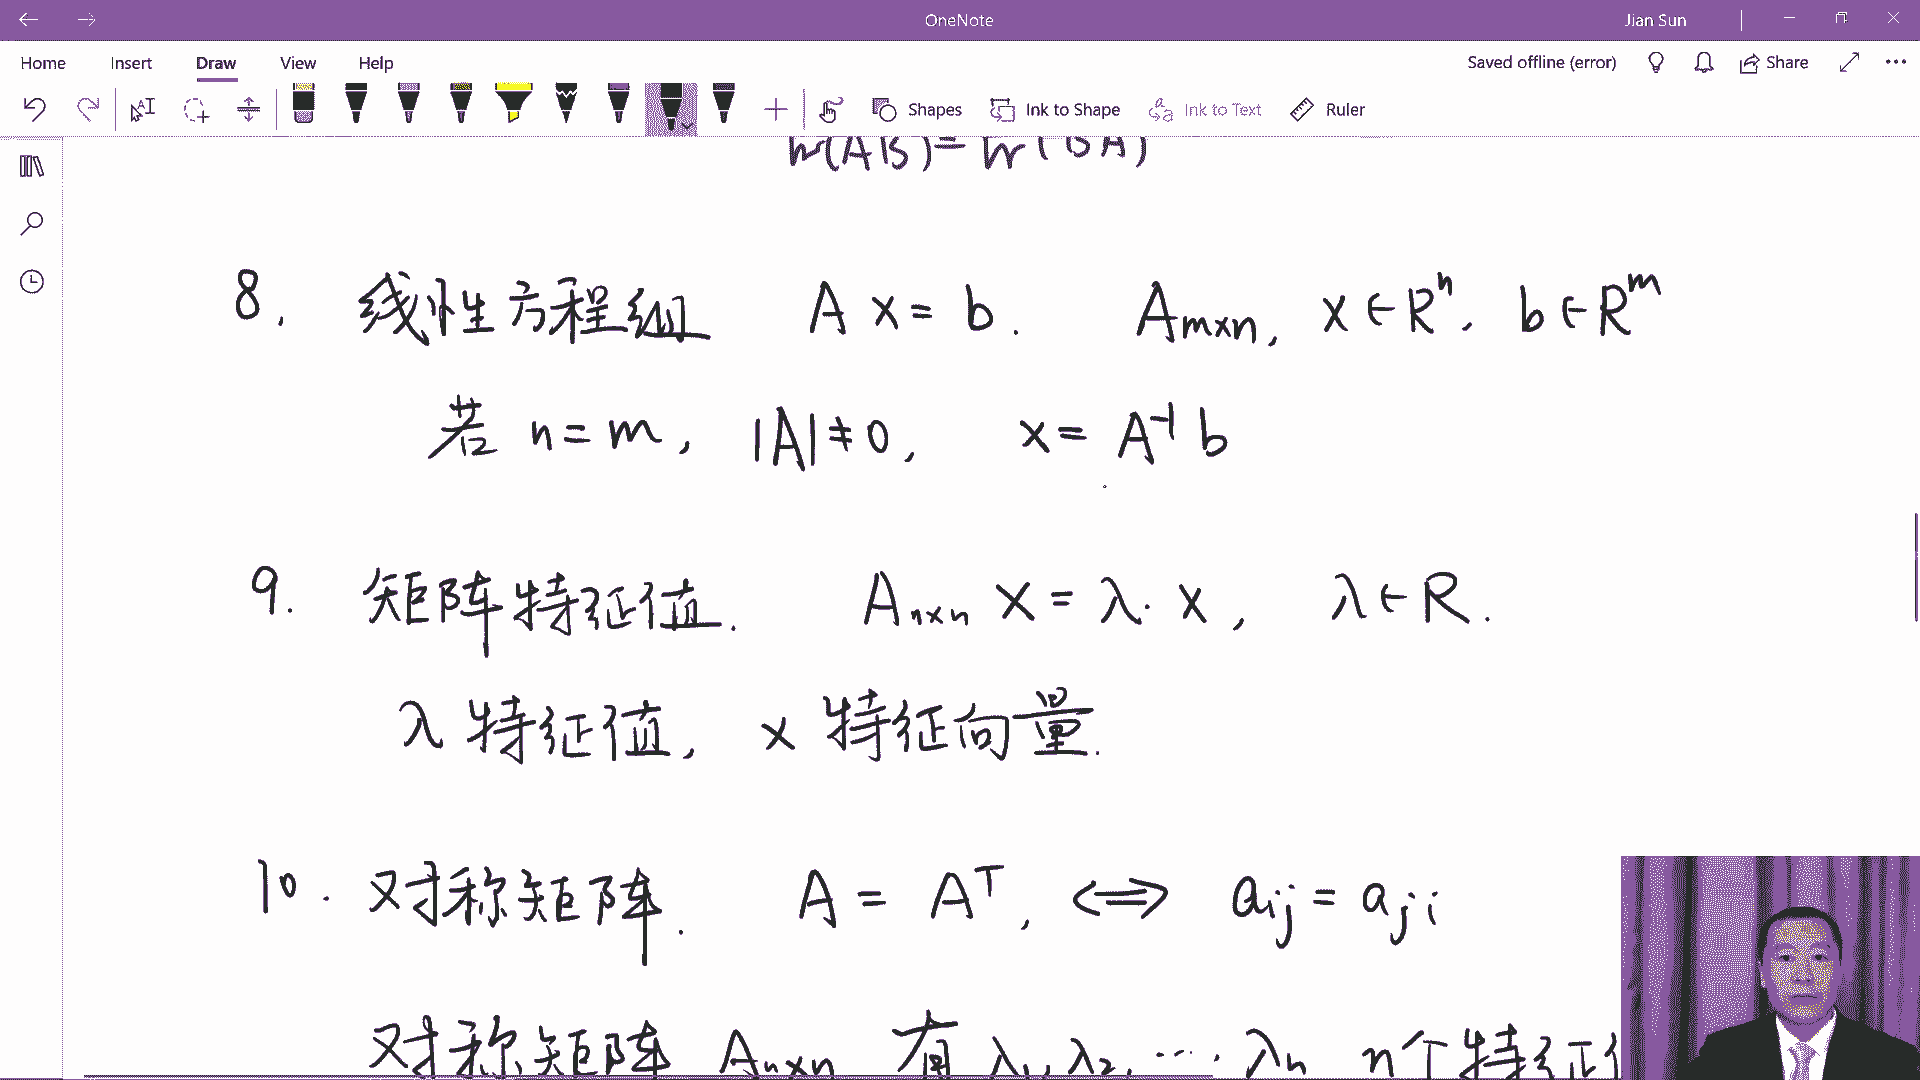 OneNote
Jian Sun
Home Insert Draw View Help
Saved offline (error) Share
Shapes Ink to Shape Ink to Text Ruler
tr(AB)=tr(BA)
8. 线性方程组 A x = b. Aₘₓₙ, x∈Rⁿ, b∈Rᵐ
若 n=m, |A|≠0, x= A⁻¹ b
9. 矩阵特征值. Aₙₓₙ x = λ· x, λ∈R.
λ 特征值, x 特征向量.
10. 对称矩阵. A = Aᵀ, ⟺ aᵢⱼ = aⱼᵢ
对称矩阵 Aₙₓₙ 有 λ₁, λ₂, ⋯, λₙ n个特征